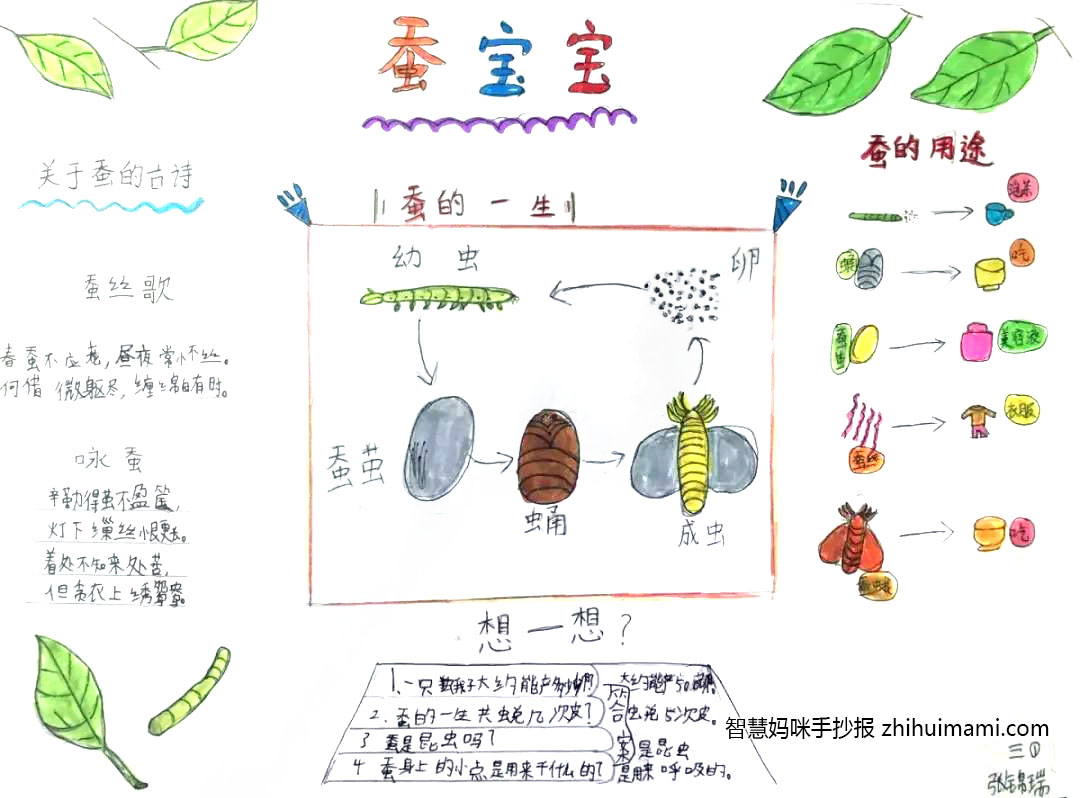 蚕宝宝
关于蚕的古诗
蚕丝歌
春蚕不应老，昼夜常怀丝。
何惜微躯尽，缠绵自有时。
咏蚕
辛勤得茧不盈筐，
灯下缫丝恨更长。
着处不知来处苦，
但贪衣上绣鸳鸯。
蚕的一生
幼虫
卵
蚕茧
蛹
成虫
蚕的用途
泡茶
吃
美容液
衣服
蚕丝
吃
想一想？
1、一只蚕蛾子大约能产多少卵
2、蚕的一生共蜕几次皮？
3 蚕是昆虫吗？
4 蚕身上的小点是用来干什么的？
答案
虫蜕5次皮。
是昆虫
是用来呼吸的。
三①
张锦瑞
智慧妈咪手抄报 zhihuimami.com